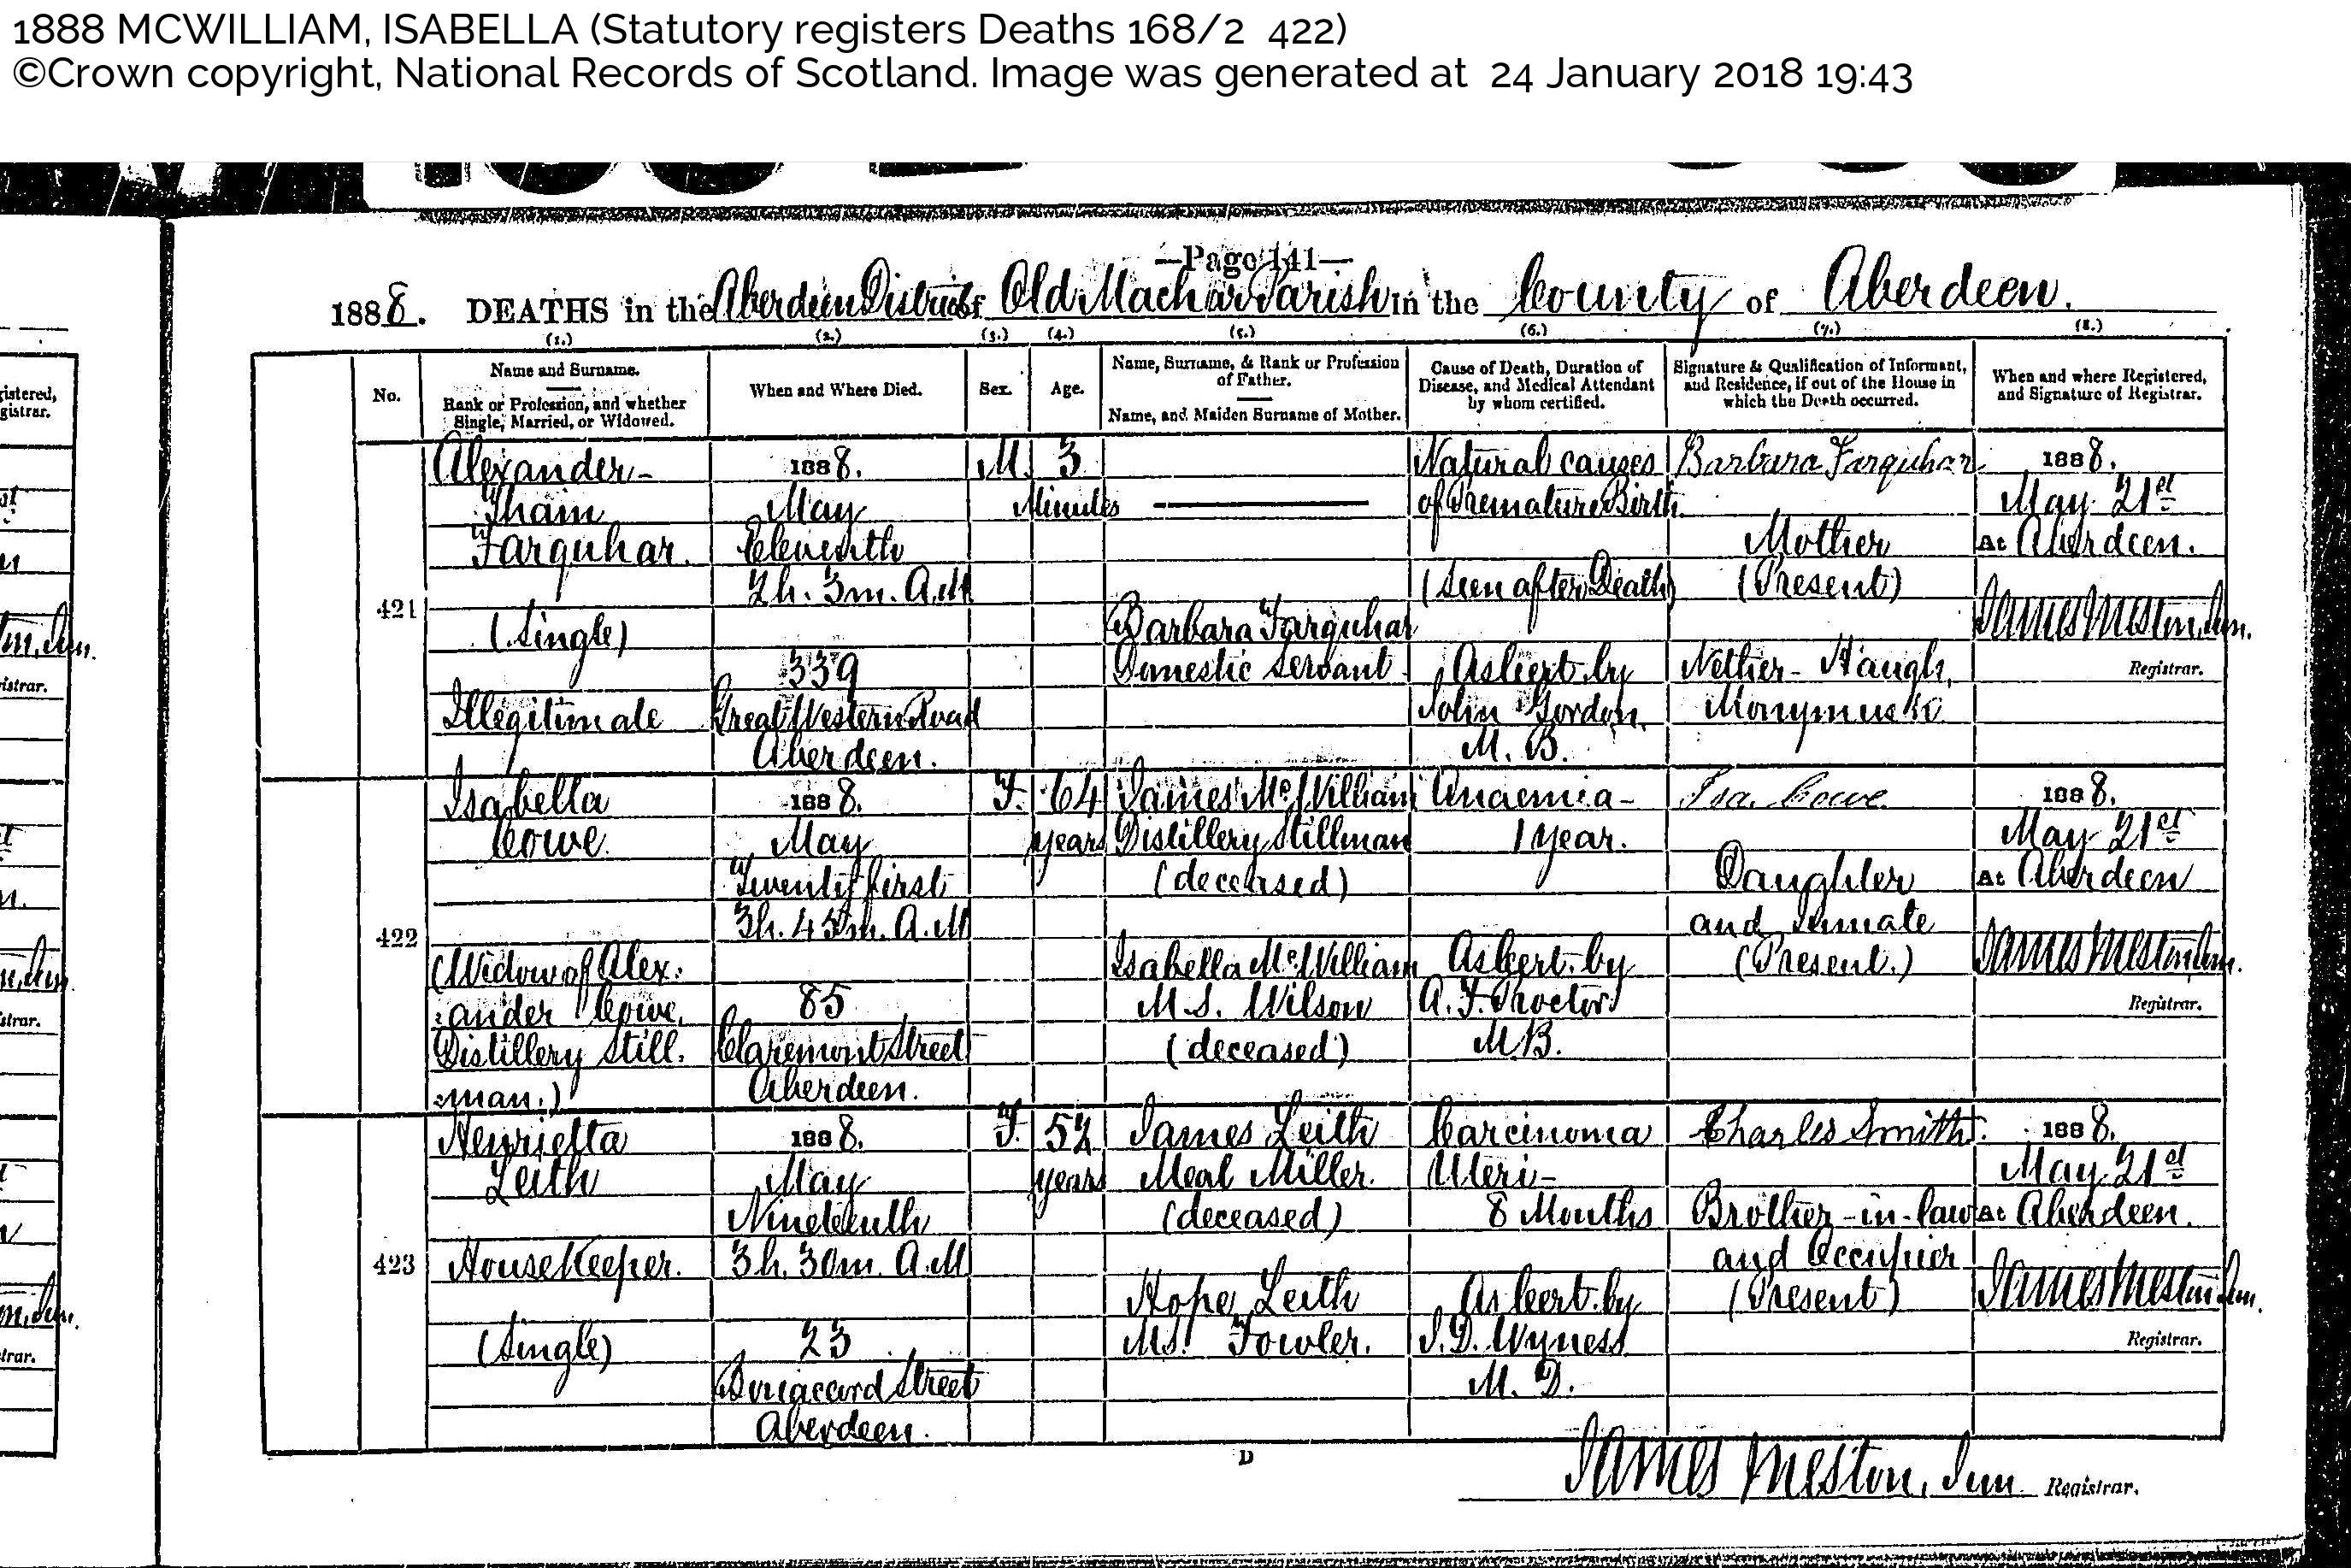 1888 MCWILLIAM, ISABELLA (Statutory registers Deaths 168/2 422)
©Crown copyright, National Records of Scotland. Image was generated at 24 January 2018 19:43
—Page 141—
1888. DEATHS in the Aberdeen District of Old Machar Parish in the County of Aberdeen.
(1.) (2.) (3.) (4.) (5.) (6.) (7.) (8.)
No.
Name and Surname.
Rank or Profession, and whether
Single, Married, or Widowed.
When and Where Died.
Sex.
Age.
Name, Surname, & Rank or Profession
of Father.
Name, and Maiden Surname of Mother.
Cause of Death, Duration of
Disease, and Medical Attendant
by whom certified.
Signature & Qualification of Informant,
and Residence, if out of the House in
which the Death occurred.
When and where Registered,
and Signature of Registrar.
421
Alexander-
Tham
Farquhar.
(Single)
Illegitimate
1888.
May
Eleventh
2h. 3m. A.M
339
Great Western Road
Aberdeen.
M.
3
Minutes
Barbara Farquhar
Domestic Servant
Natural causes
of Premature Birth.
(Seen after Death)
As Cert. by
John Gordon.
M.B.
Barbara Farquhar
Mother
(Present)
Nether-Haugh,
Monymusk
1888.
May 21st
At Aberdeen.
James Meston, Jun.
Registrar.
422
Isabella
Cowe.
(Widow of Alex:
:ander Cowe,
Distillery Still:
:man.)
1888.
May
Twenty first
3h. 45m. A.M
85
Claremont Street
Aberdeen.
F.
64
years
James McWilliam
Distillery Stillman
(deceased)
Isabella McWilliam
M.S. Wilson
(deceased)
Anaemia-
1 year.
As Cert. by
A. F. Proctor
M.B.
Isa. Cowe.
Daughter
and Inmate
(Present.)
1888.
May 21st
At Aberdeen
James Meston, Jun.
Registrar.
423
Henrietta
Leith
HouseKeeper.
(Single)
1888.
May
Nineteenth
3h. 30m. A.M
23
Street
Aberdeen.
F.
52
years
James Leith
Meal Miller.
(deceased)
Hope Leith
MS. Fowler.
Carcinoma
Uteri-
8 Months
As Cert. by
J.D. Wyness
M.D.
Charles Smith.
Brother-in-law
and Occupier
(Present)
1888.
May 21st
At Aberdeen.
James Meston, Jun.
Registrar.
D
James Meston, Jun. Registrar.